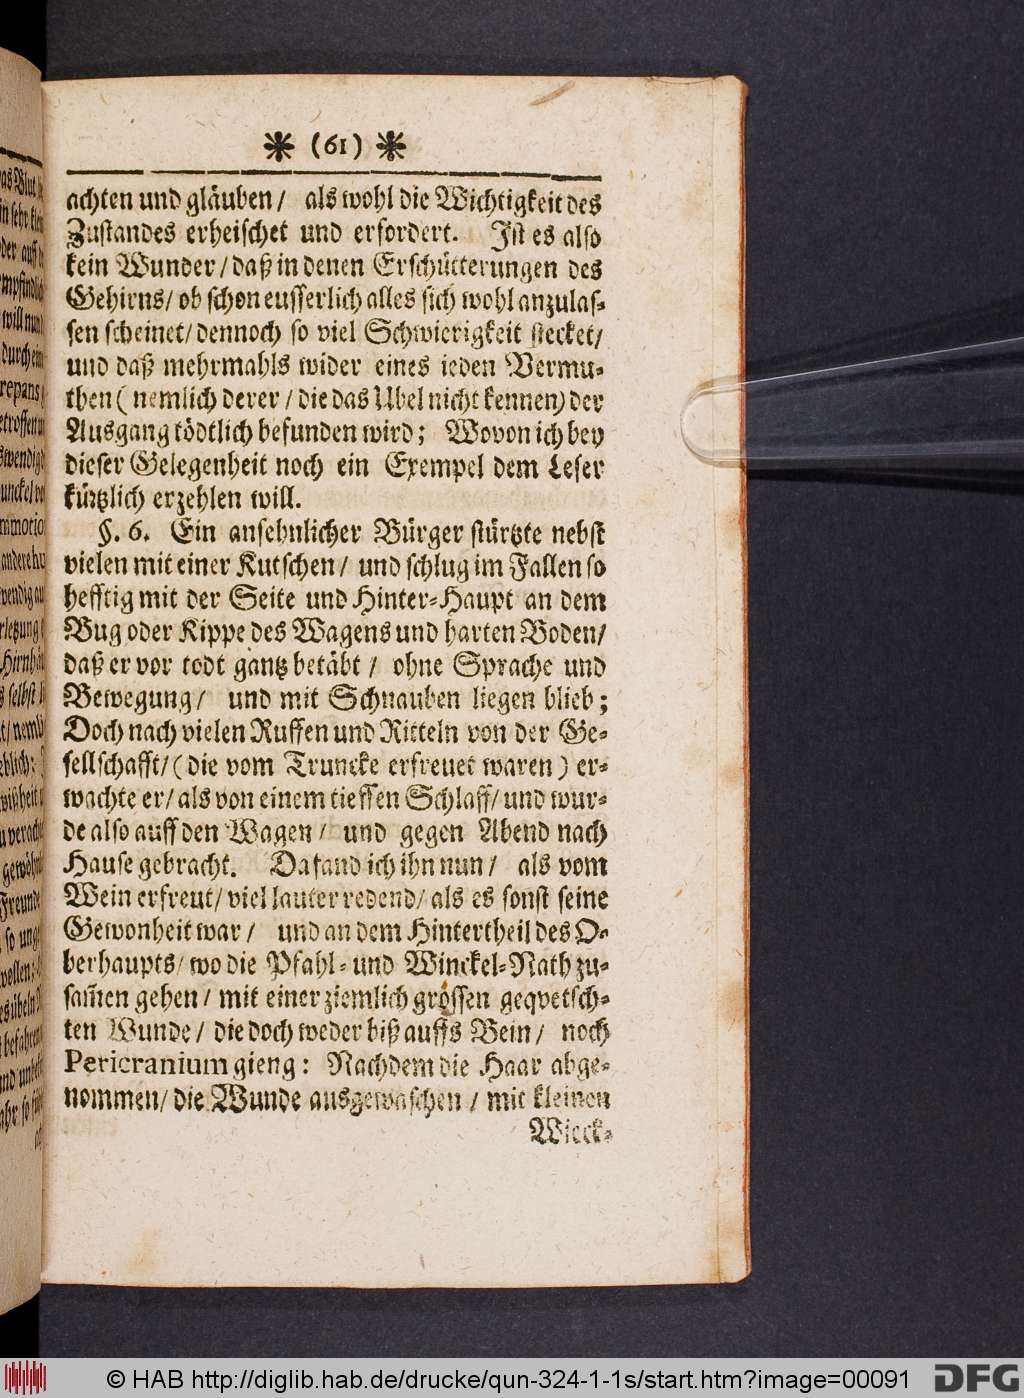 * (61) *
achten und gläuben / als wohl die Wichtigkeit des
Zustandes erheischet und erfordert. Ist es also
kein Wunder / daß in denen Erschütterungen des
Gehirns / ob schon eusserlich alles sich wohl anzulas-
sen scheinet / dennoch so viel Schwierigkeit stecket /
und daß mehrmahls wider eines ieden Vermu-
then ( nemlich derer / die das Ubel nicht kennen) der
Ausgang tödtlich befunden wird; Wovon ich bey
dieser Gelegenheit noch ein Exempel dem Leser
kürtzlich erzehlen will.
§. 6. Ein ansehnlicher Bürger stürtzte nebst
vielen mit einer Kutschen / und schlug im Fallen so
hefftig mit der Seite und Hinter-Haupt an dem
Bug oder Kippe des Wagens und harten Boden /
daß er vor todt gantz betäbt / ohne Sprache und
Bewegung / und mit Schnauben liegen blieb;
Doch nach vielen Ruffen und Ritteln von der Ge-
sellschafft / ( die vom Truncke erfreuet waren ) er-
wachte er / als von einem tieffen Schlaff / und wur-
de also auff den Wagen / und gegen Abend nach
Hause gebracht. Da fand ich ihn nun / als vom
Wein erfreut / viel lauter redend / als es sonst seine
Gewonheit war / und an dem Hintertheil des O-
berhaupts / wo die Pfahl- und Winckel-Nath zu-
sam̃en gehen / mit einer ziemlich grossen geqvetsch-
ten Wunde / die doch weder biß auffs Bein / noch
Pericranium gieng: Nachdem die Haar abge-
nommen / die Wunde ausgewaschen / mit kleinen
Wieck-
© HAB http://diglib.hab.de/drucke/qun-324-1-1s/start.htm?image=00091
DFG